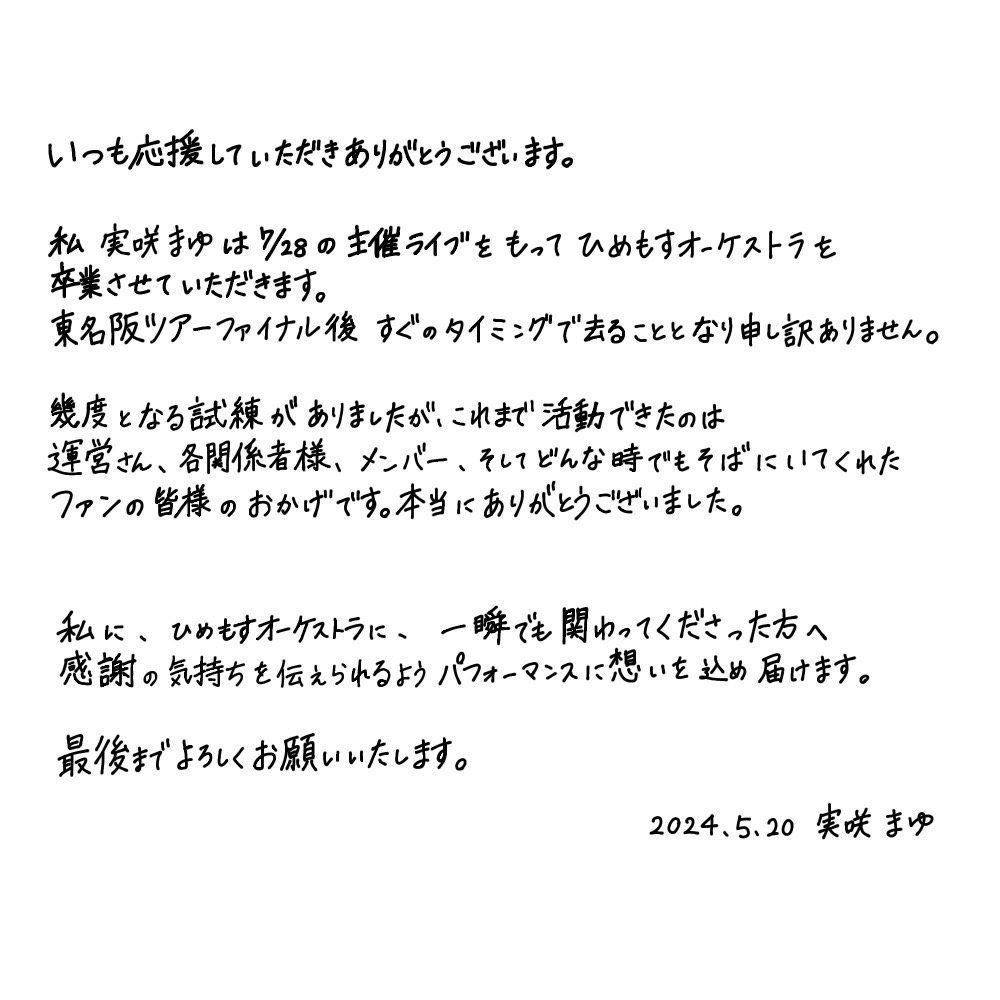 いつも応援していただきありがとうございます。
私 実咲まゆは7/28の主催ライブをもってひめもすオーケストラを
卒業させていただきます。
東名阪ツアーファイナル後 すぐのタイミングで去ることとなり申し訳ありません。
幾度となる試練がありましたが、これまで活動できたのは
運営さん、各関係者様、メンバー、そしてどんな時でもそばにいてくれた
ファンの皆様のおかげです。本当にありがとうございました。
私に、ひめもすオーケストラに、一瞬でも関わってくださった方へ
感謝の気持ちを伝えられるようパフォーマンスに想いを込め届けます。
最後までよろしくお願いいたします。
2024.5.20 実咲まゆ